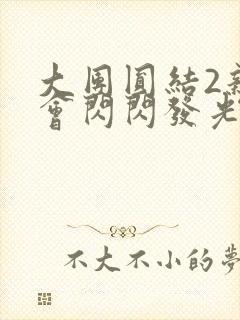 大團圓結2新
會閃閃發光
不大不小的夢